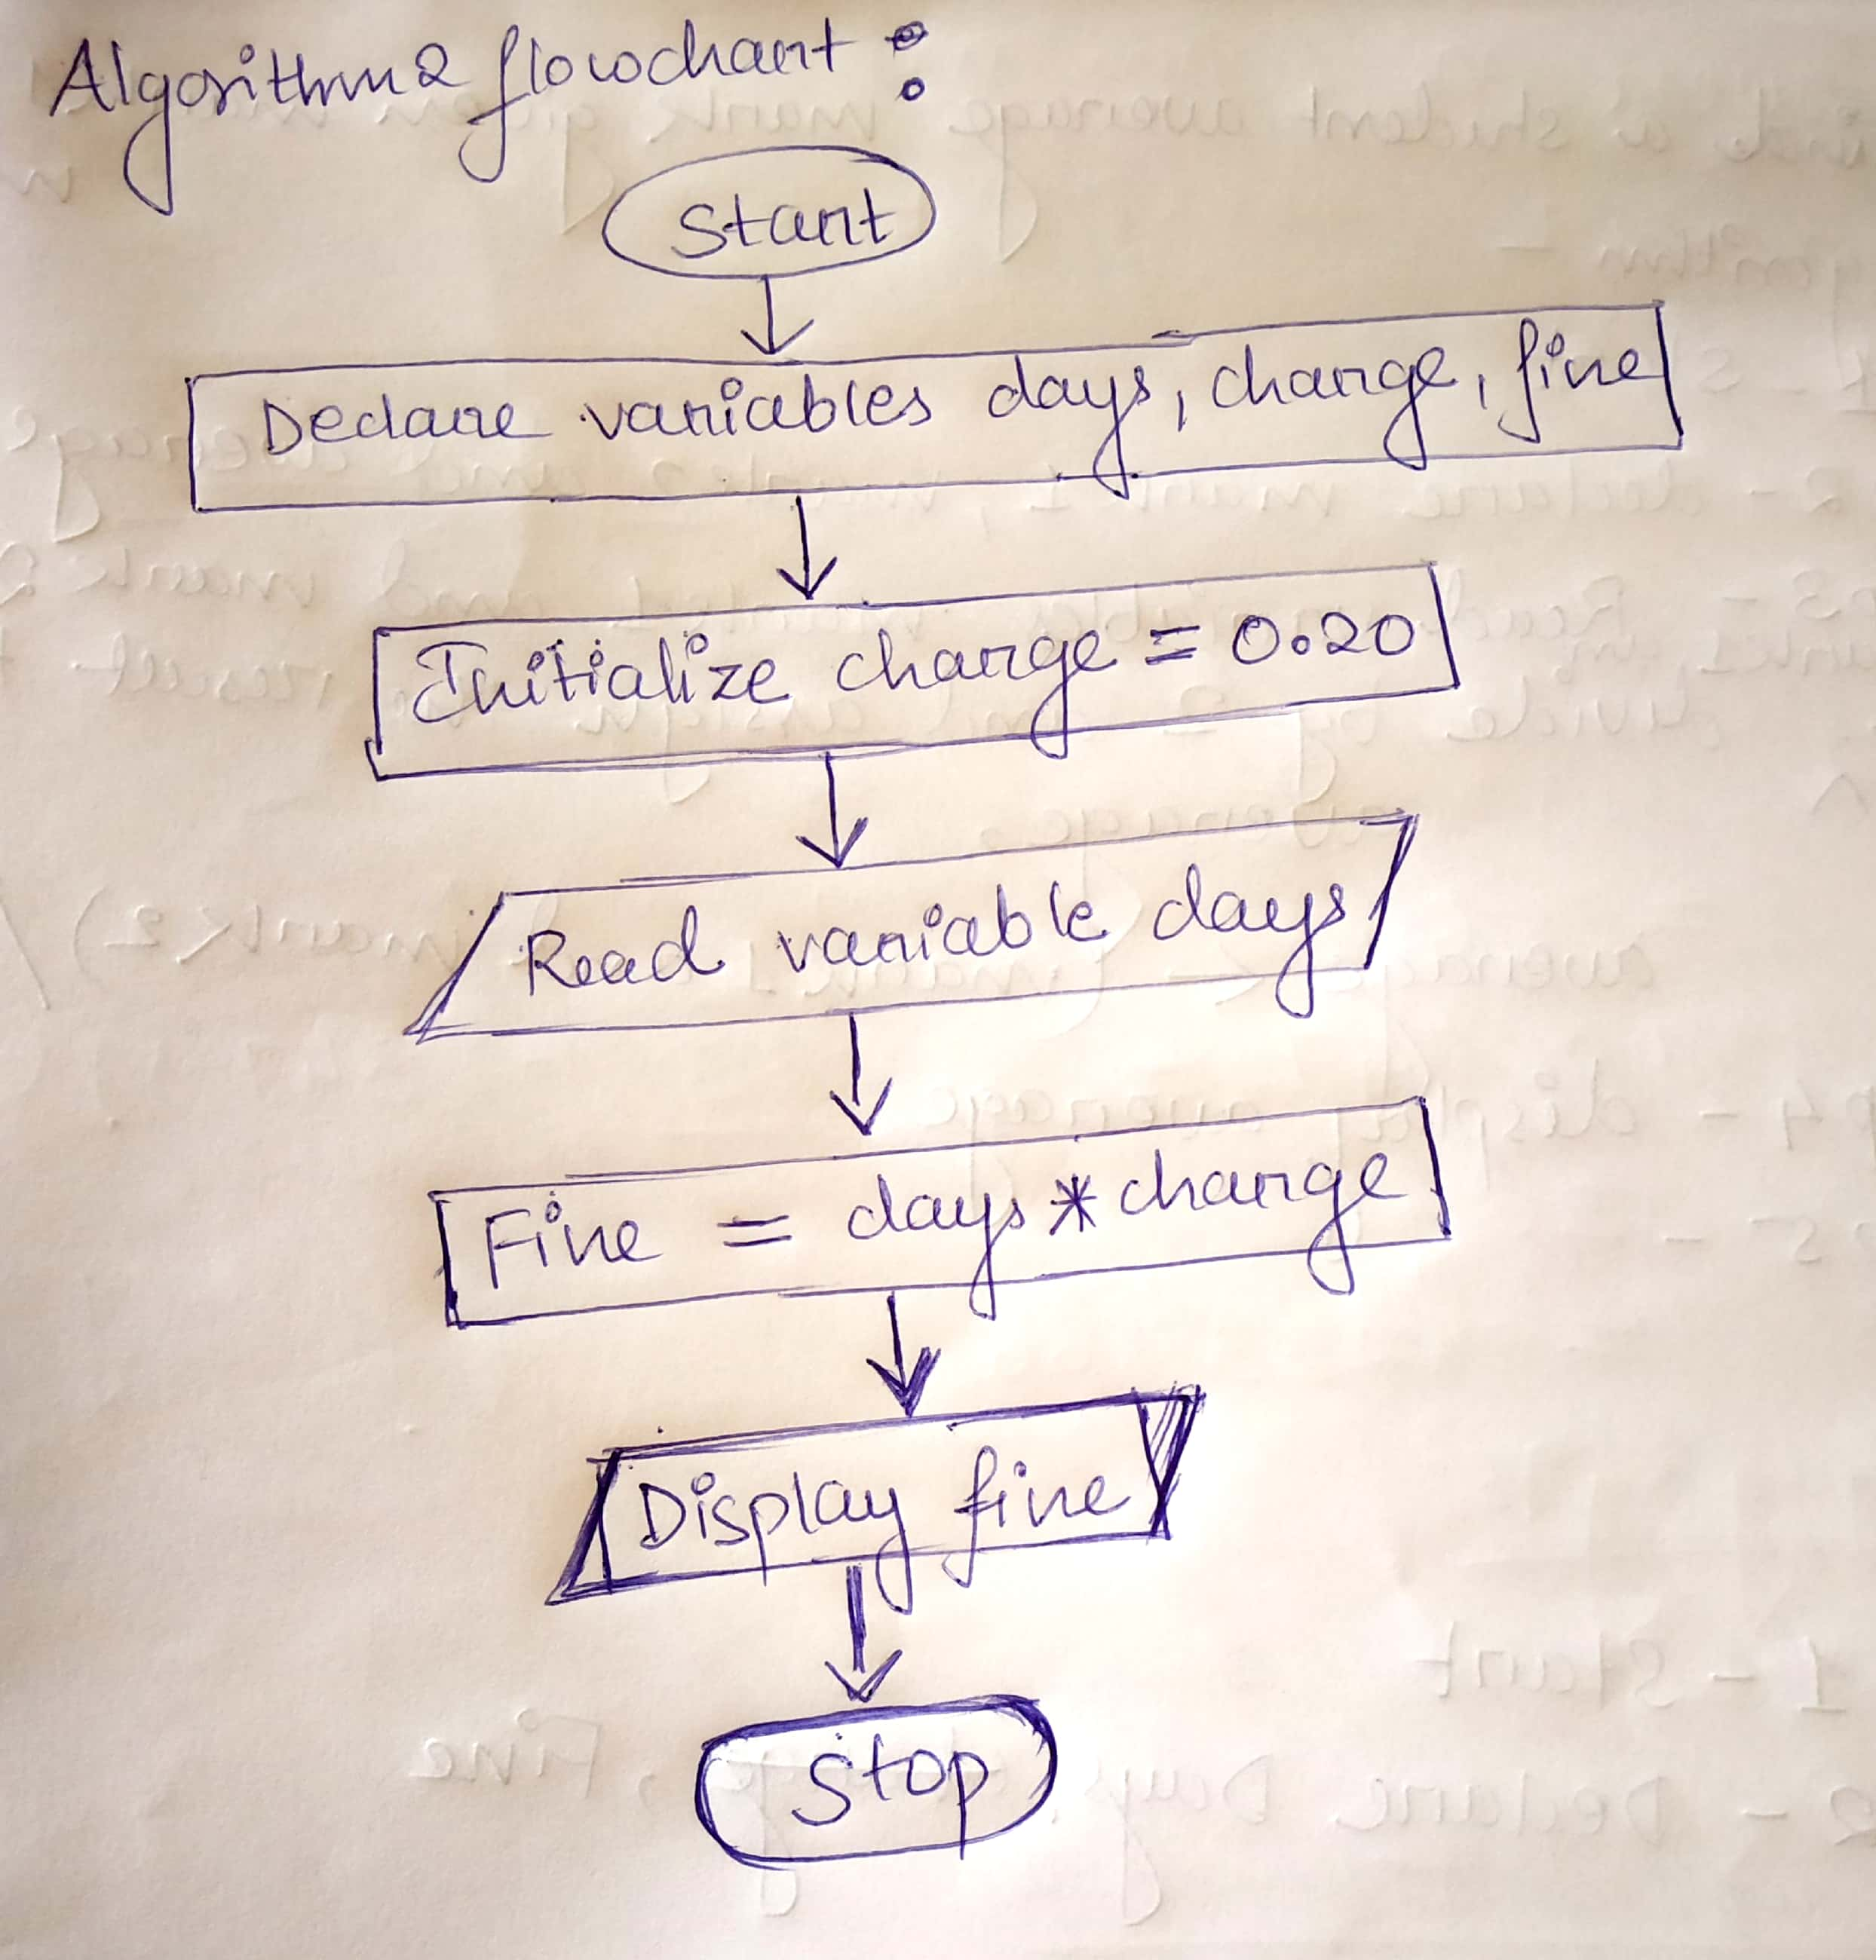 Algorithm2 flowchart :
Start
Declare variables days, charge, fine
Initialize charge = 0.20
Read variable days
Fine = days * charge
Display fine
Stop